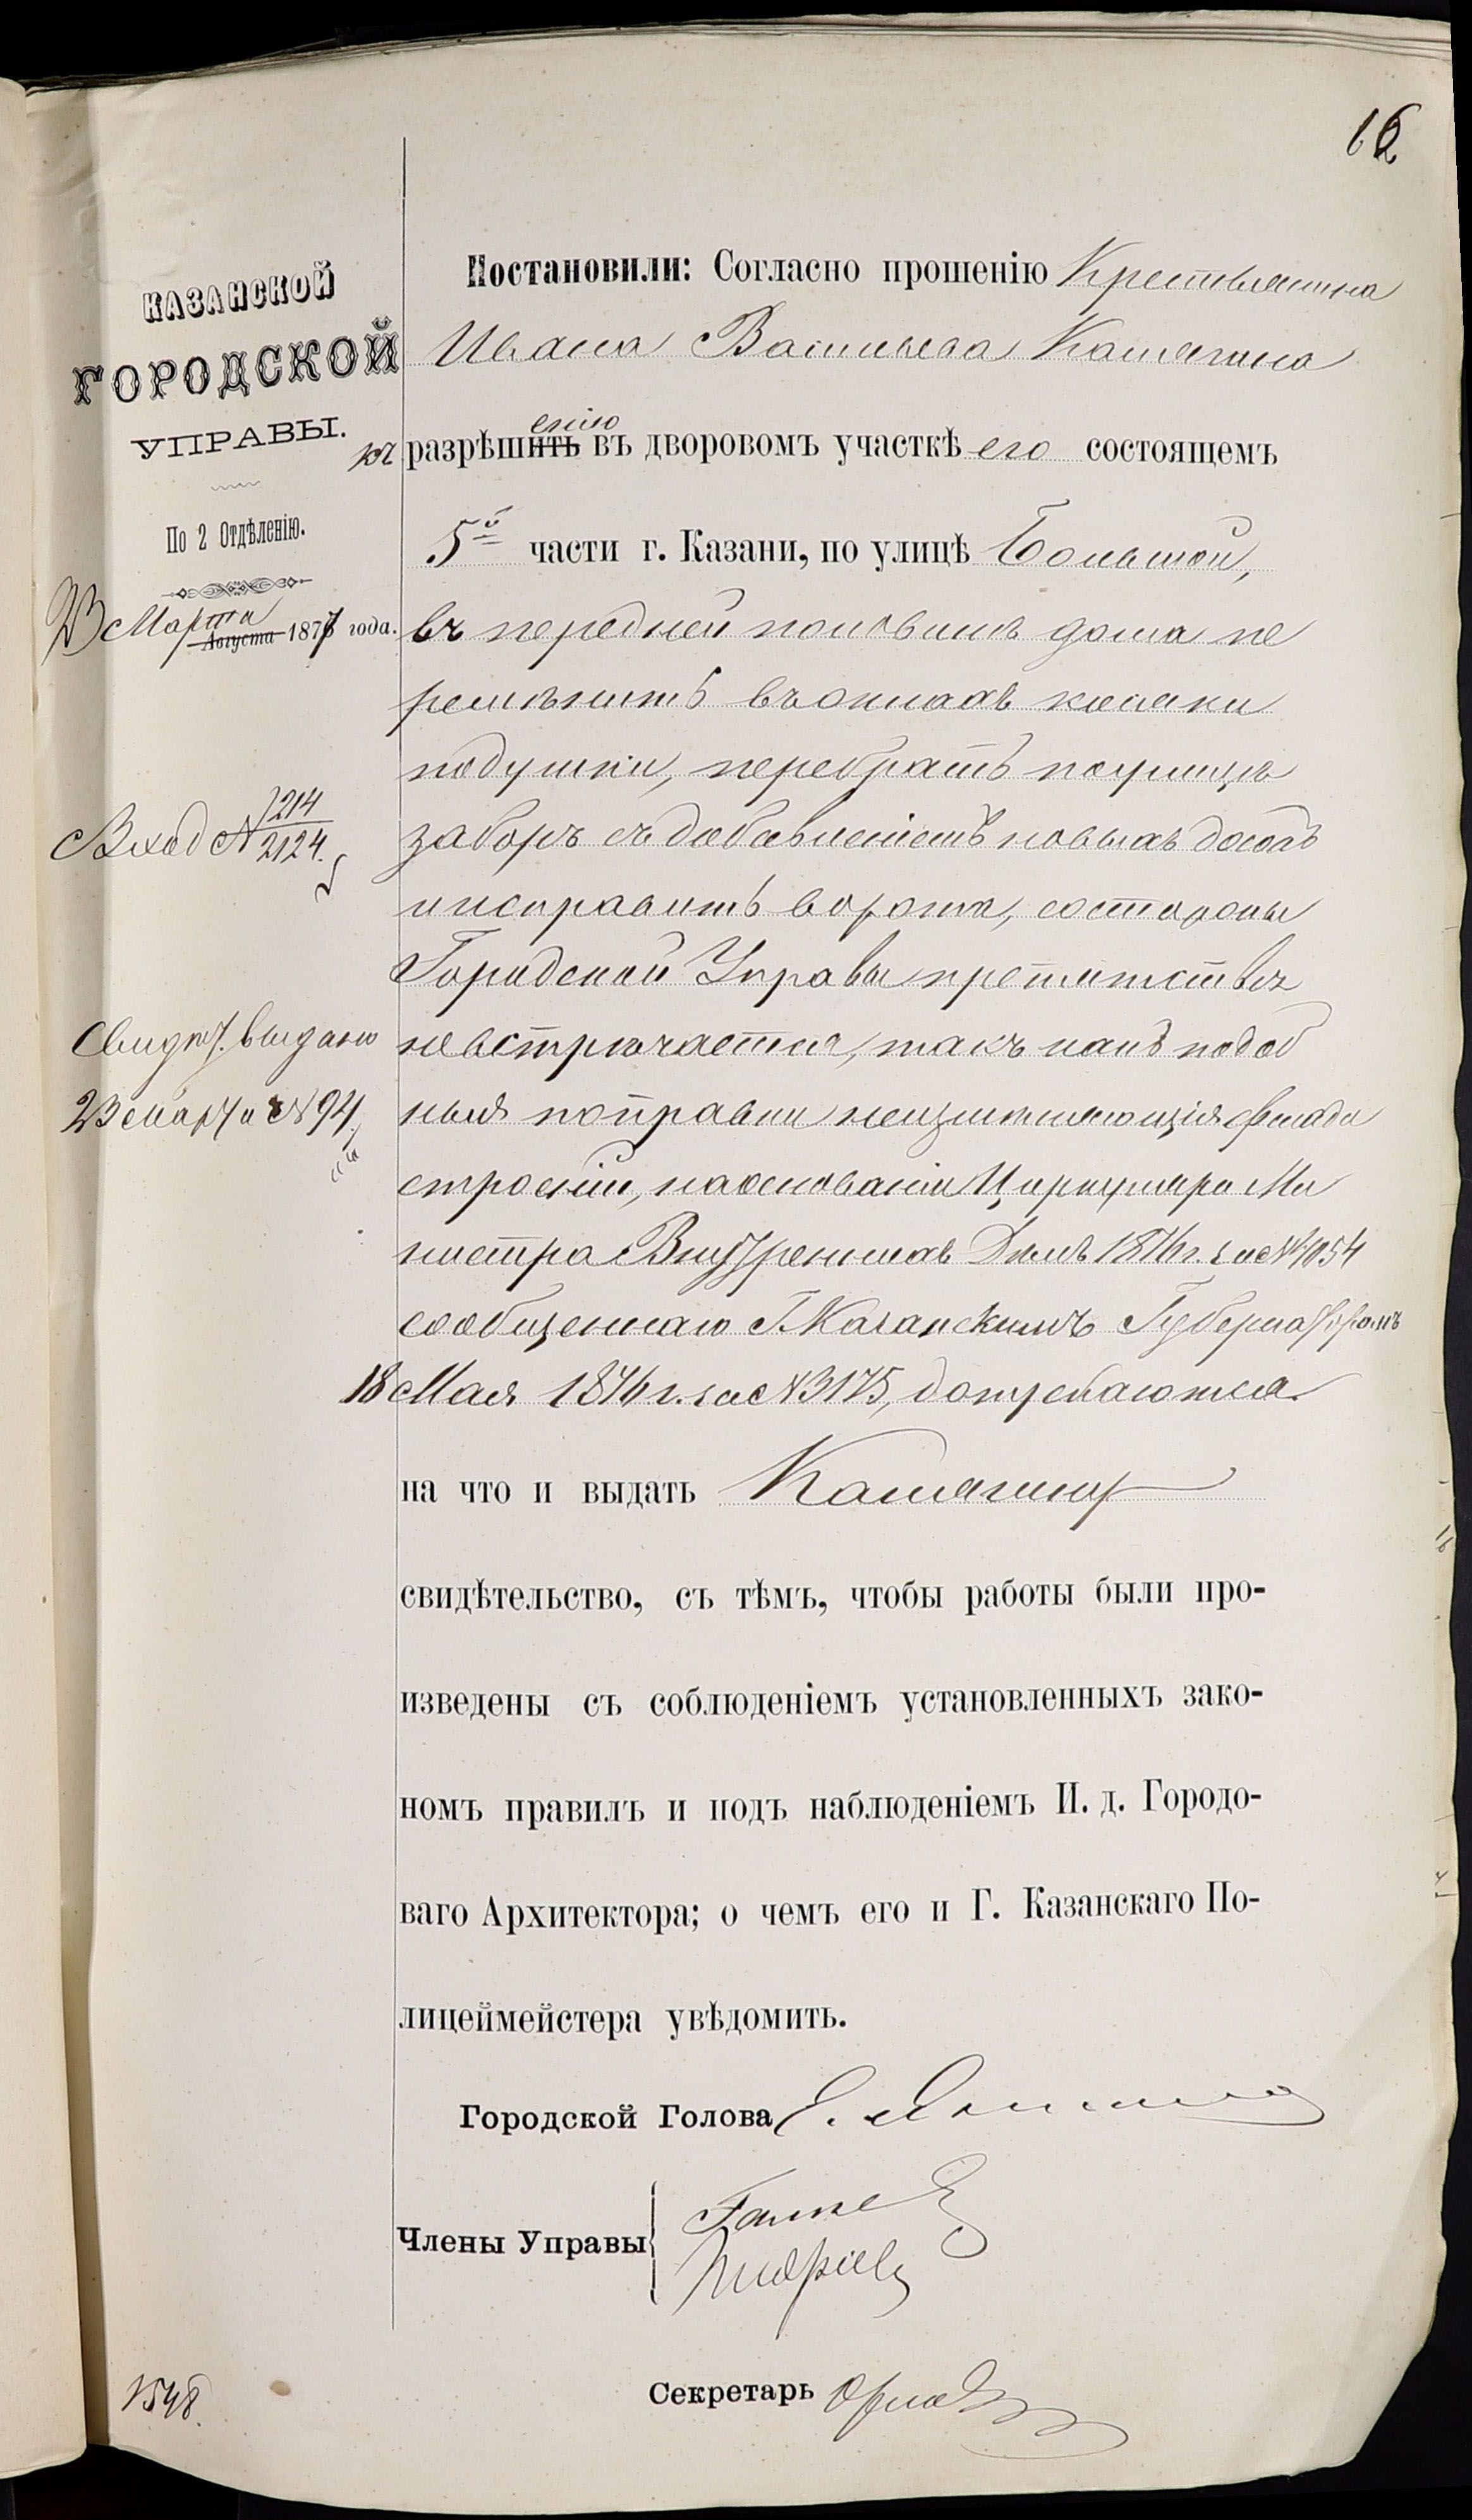 16
КАЗАНСКОЙ
ГОРОДСКОЙ
УПРАВЫ.
По 2 Отдѣленію.
23 Марта
Августа 1877 года.
Вход №
1214
2124.
Свидѣт. выдано
23 марта № 94
1548.
Постановили: Согласно прошенію Крестьянина
Ивана Васильева Калягина
къ разрѣшить
енію
въ дворовомъ участкѣ его состоящемъ
5й части г. Казани, по улицѣ Большой,
въ передней половинѣ дома пе
ремѣнить въ окнахъ косяки
подушки, перебрать
заборъ съ добавленіемъ новыхъ досокъ
и исправить ворота, со стороны
Городской Управы препятствія
не встрѣчается, такъ какъ подоб
ныя поправки неизмѣняющія фасада
строеній, на основаніи Циркуляра Ми
нистра Внутреннихъ Дѣлъ 1876 г. за №
сообщеннаго Г. Казанскимъ Губернаторомъ
18 Мая 1876 г. за № 3175, допускаются
на что и выдать Калягину
свидѣтельство, съ тѣмъ, чтобы работы были про-
изведены съ соблюденіемъ установленныхъ зако-
номъ правилъ и подъ наблюденіемъ И. д. Городо-
ваго Архитектора; о чемъ его и Г. Казанскаго По-
лицеймейстера увѣдомить.
Городской Голова
Члены Управы
Секретарь